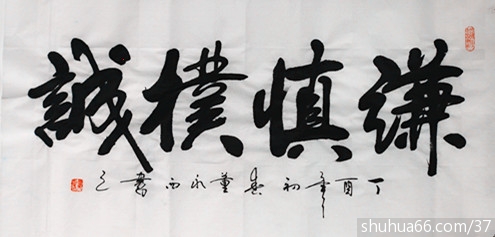 謙慎樸誠
丁酉年初春董永西書之
shuhua66.com/37